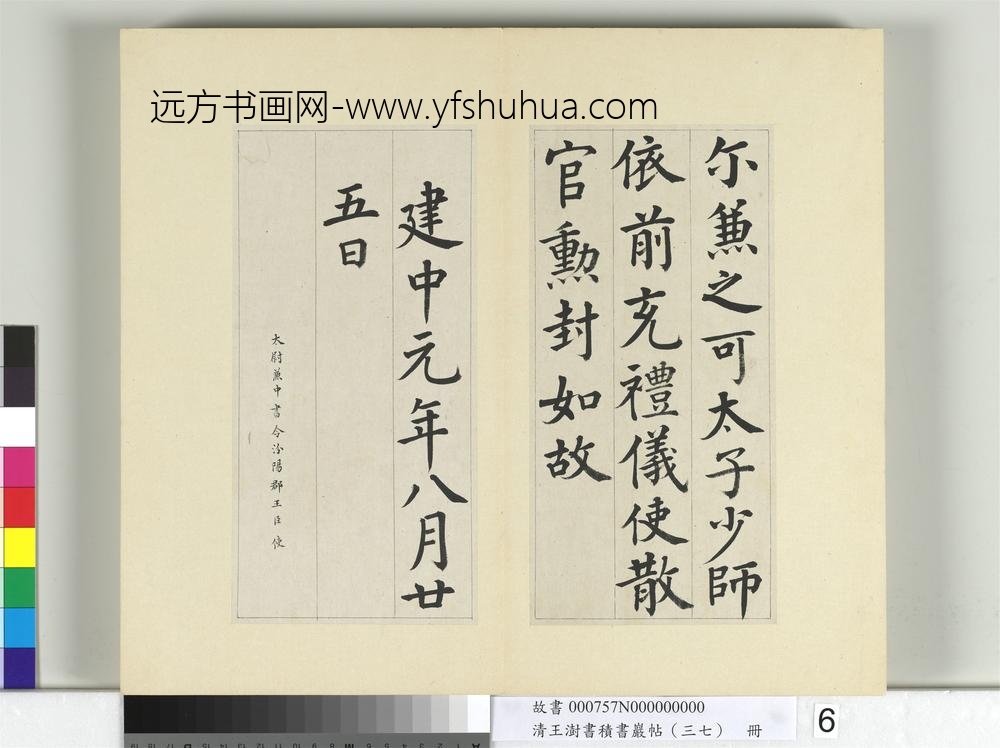 远方书画网-www.yfshuhua.com
尓兼之可太子少師
依前充禮儀使散
官勲封如故
建中元年八月廿
五日
太尉兼中書令汾陽郡王臣使
故書 000757N000000000
清王澍書積書巖帖（三七） 冊
6